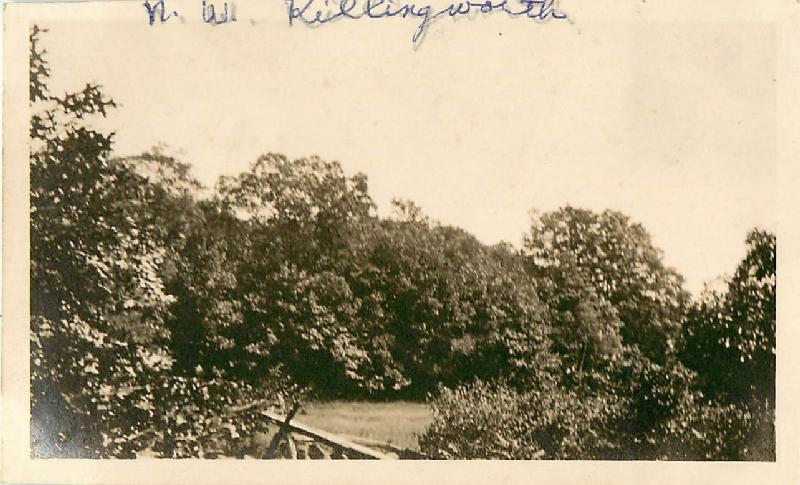 N. W. Killingworth